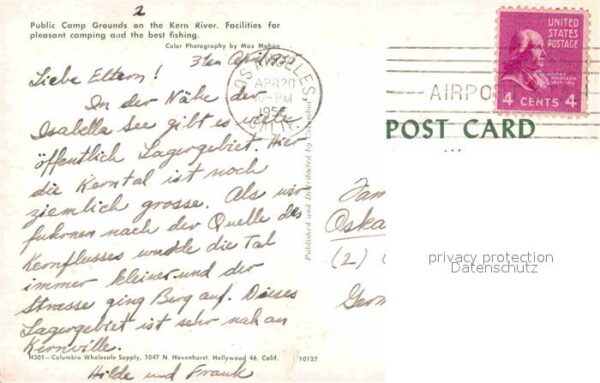 2
Public Camp Grounds on the Kern River. Facilities for
pleasant camping and the best fishing.
Color Photography by Max Mahan
Liebe Eltern!
In der Nähe der
Isabella See gibt es viele
öffentlich Lagergebiet. Hier
die Kerntal ist noch
ziemlich grosse. Als wir
fuhren nach der Quelle des
Kernflusses wurde die Tal
immer kleiner und der
Strasse ging Berg auf. Dieses
Lagergebiet ist sehr nah an
Kernville.
H301—Columbia Wholesale Supply, 1047 N. Havenhurst, Hollywood 46, Calif. 10127
Hilde und Frank
Published and Distributed by Columbia
LOS ANGELES
APR 20
PM
CALIF.
AIRPO
UNITED
STATES
POSTAGE
JAMES
MADISON
4 CENTS 4
POST CARD
Fam
Oska
(2)
Germ
privacy protection
Datenschutz